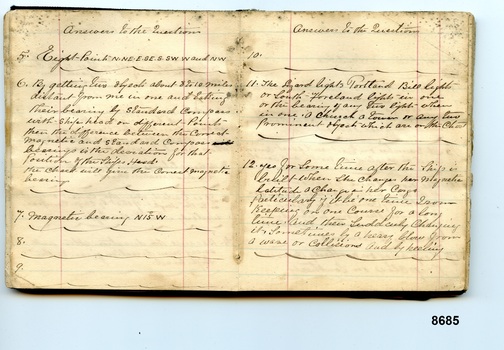 Answers to the Questions
5. Eight Points N. NE. E. SE. S. SW. W and NW
6. By getting two objects about 8 to 10 miles
distant from me in one and taking
their bearing by Standard Compass
with Ships head on different Points
then the difference between the Correct
magnetic and Standard Compass
Bearings is the deviation for that
Position of the Ships Head
the Chart will give the Correct magnetic
bearing
7. Magnetic bearing N 15° W
8.
9.
Answers to the Questions
10.
11. The Lizard lights Portland Bill lights
or South Foreland lights in one
or the bearing of any two lights when
in one. A Church a Tower or any two
Prominent objects which are on the Chart
12. Yes for Some time after the Ship is
built When She Changes her magnetic
latitude a Change in her Cargo
particularly if she one time
Keeping on one Course for a long
time and then Suddenly Changing
it. Sometimes by a heavy blow from
a wave or Collisions and by heeling
8685